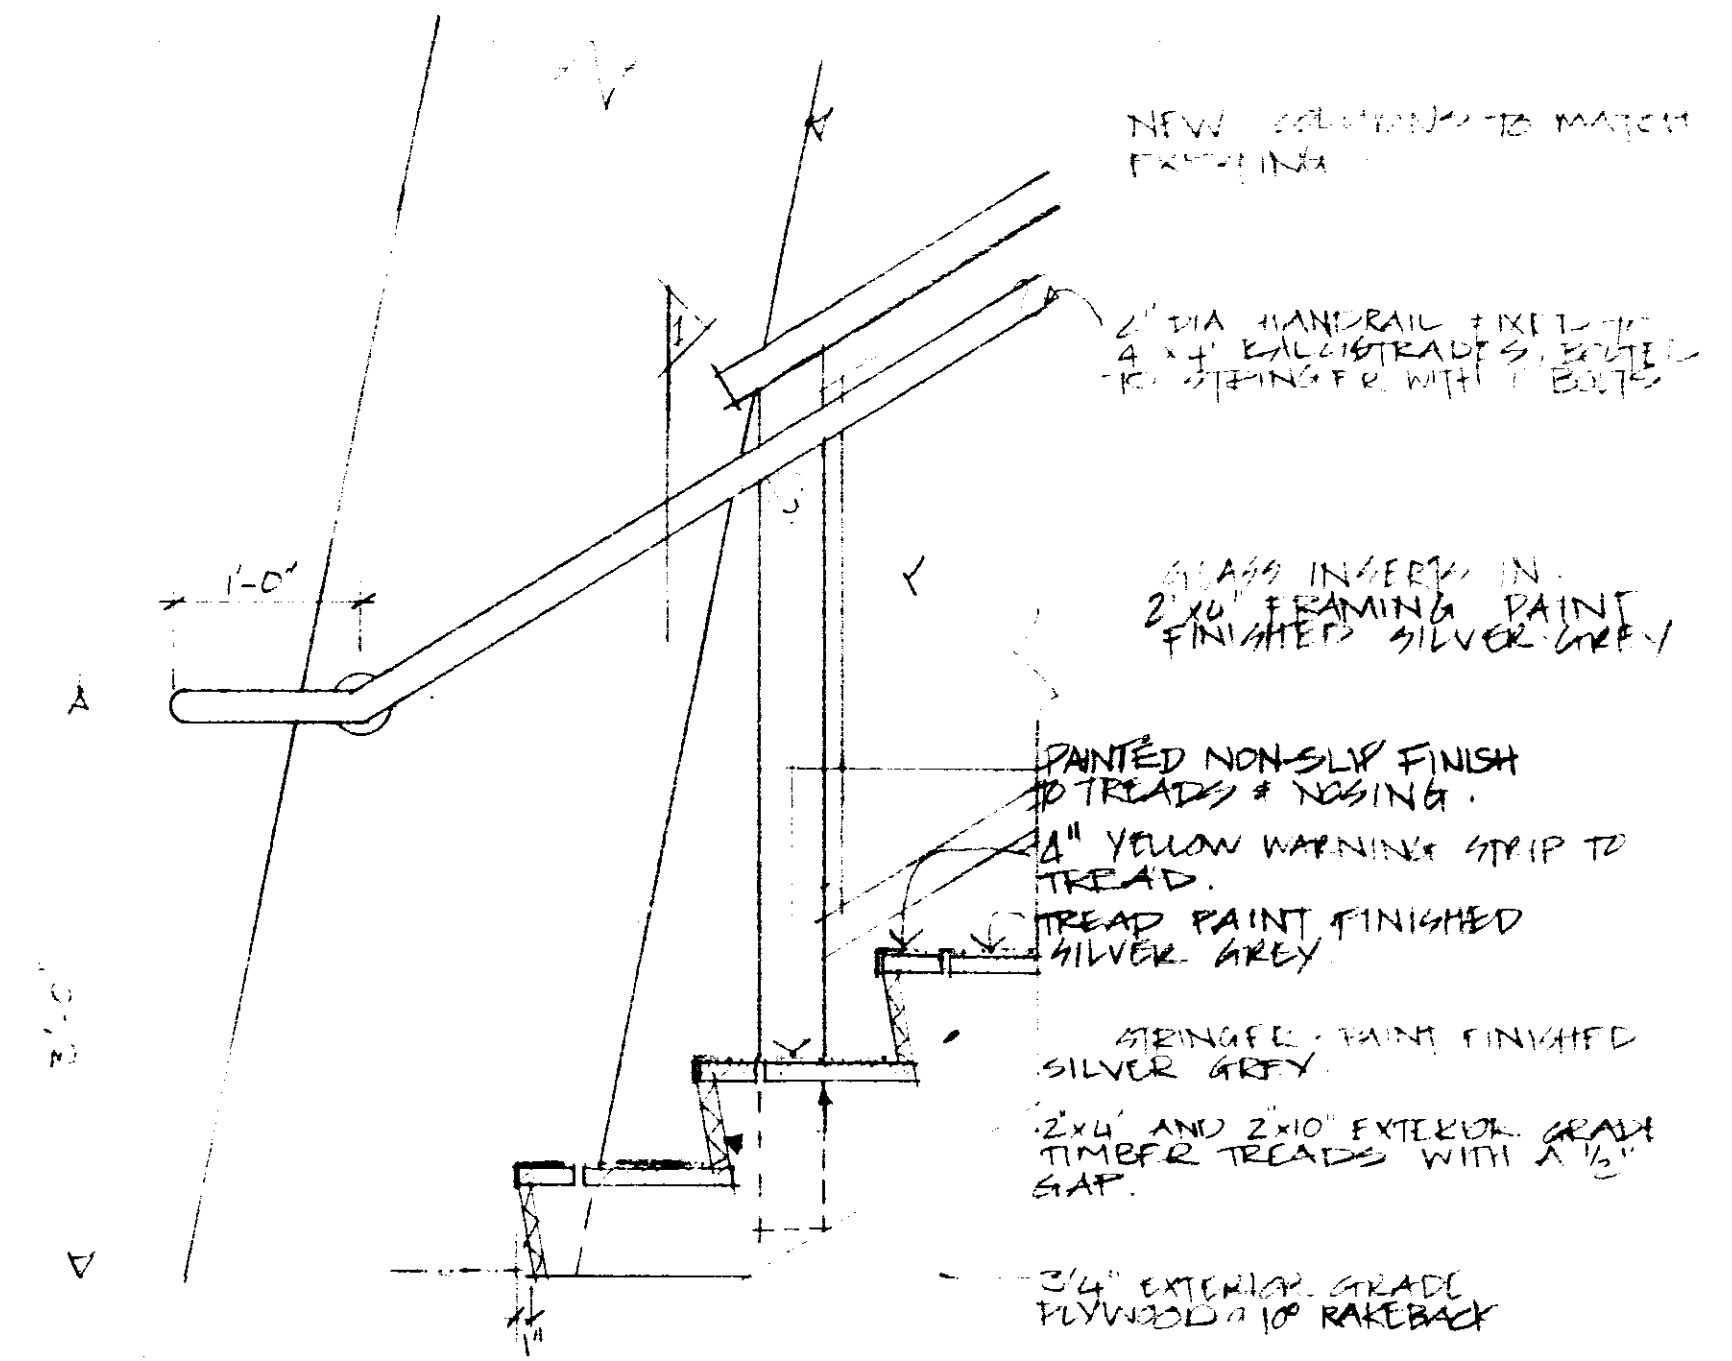 NEW COLUMNS TO MATCH
EXISTING
2" DIA HANDRAIL FIXED TO
4" x 4" BALLISTRADES, BOLTED
TO STRINGER WITH BOLTS
1
1'-0"
GLASS INSERTS IN
2"x4" FRAMING PAINT
FINISHED SILVER GREY
PAINTED NON-SLIP FINISH
TO TREADS & NOSING.
4" YELLOW WARNING STRIP TO
TREAD.
TREAD PAINT FINISHED
SILVER GREY
3'-0"
STRINGER - PAINT FINISHED
SILVER GREY
2"x4" AND 2"x10" EXTERIOR GRADE
TIMBER TREADS WITH A 1/2"
GAP.
3/4" EXTERIOR GRADE
PLYWOOD 10° RAKEBACK
1"